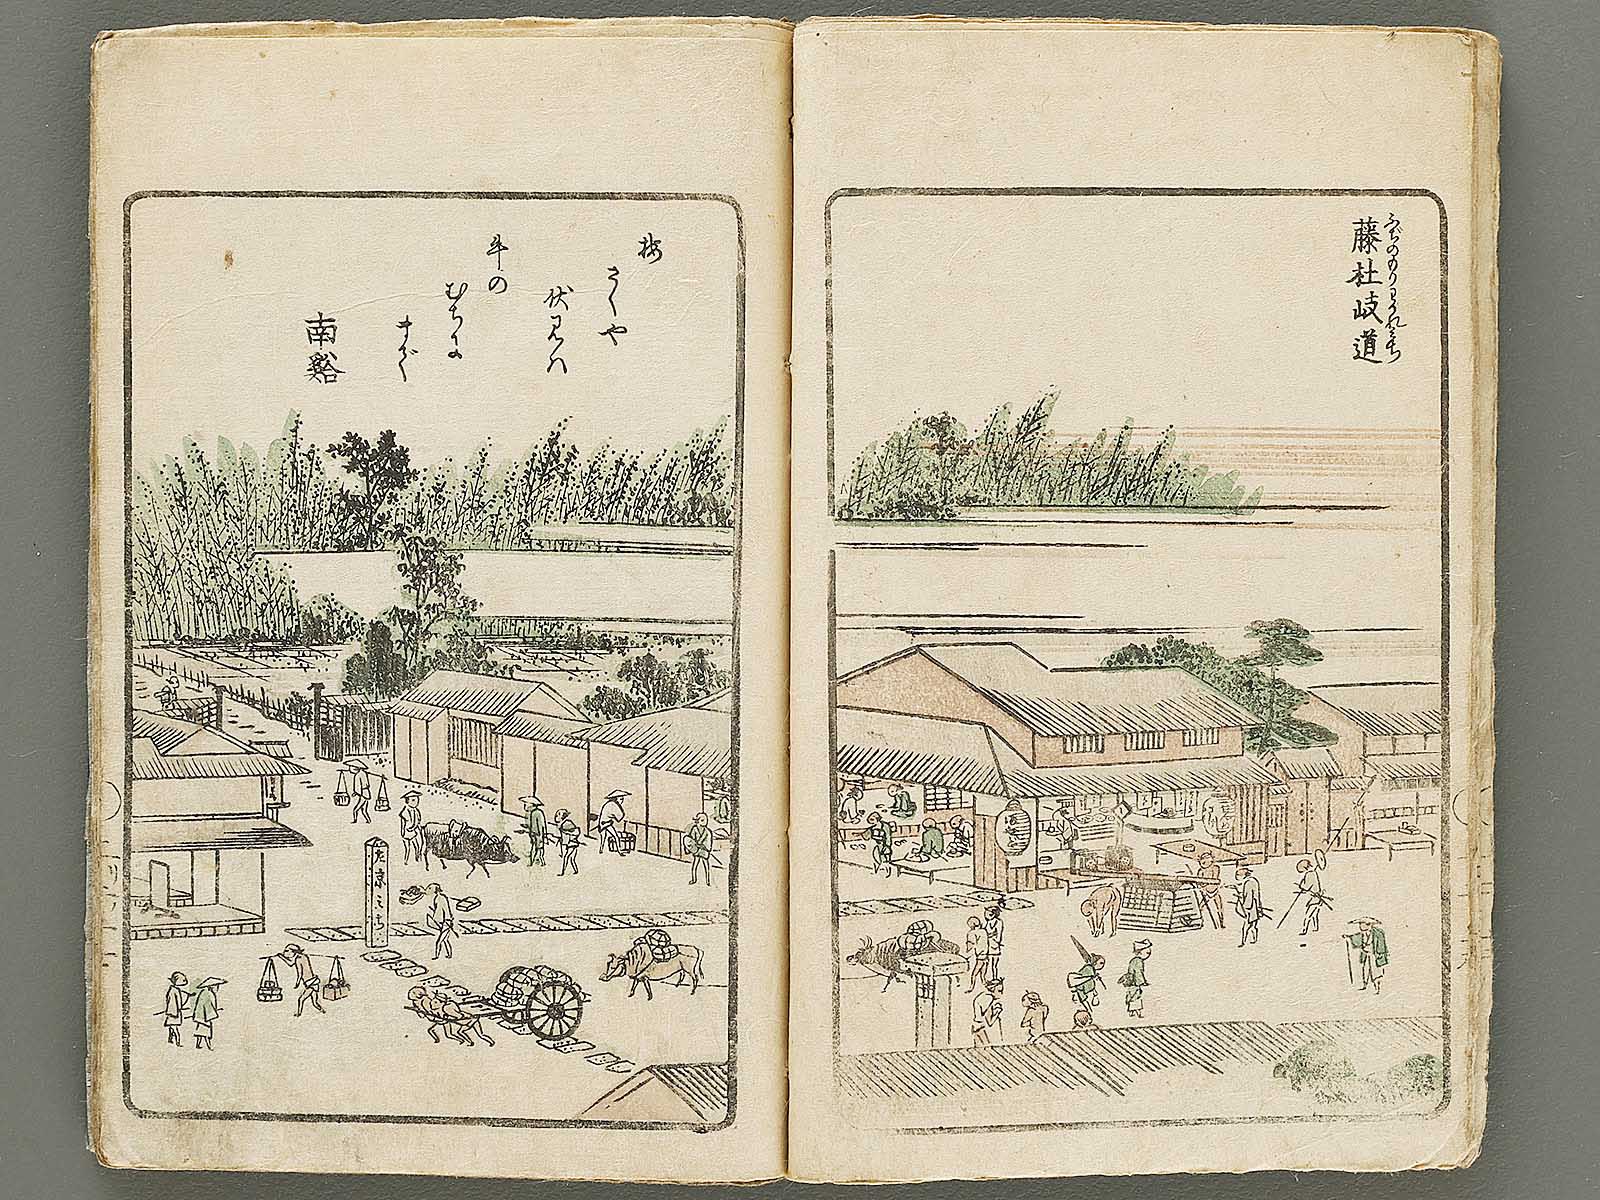 ふぢのもりわかれみち
藤杜岐道
梅
さくや
伏見ハ
牛の
むちに
まで
南谿
左京みち